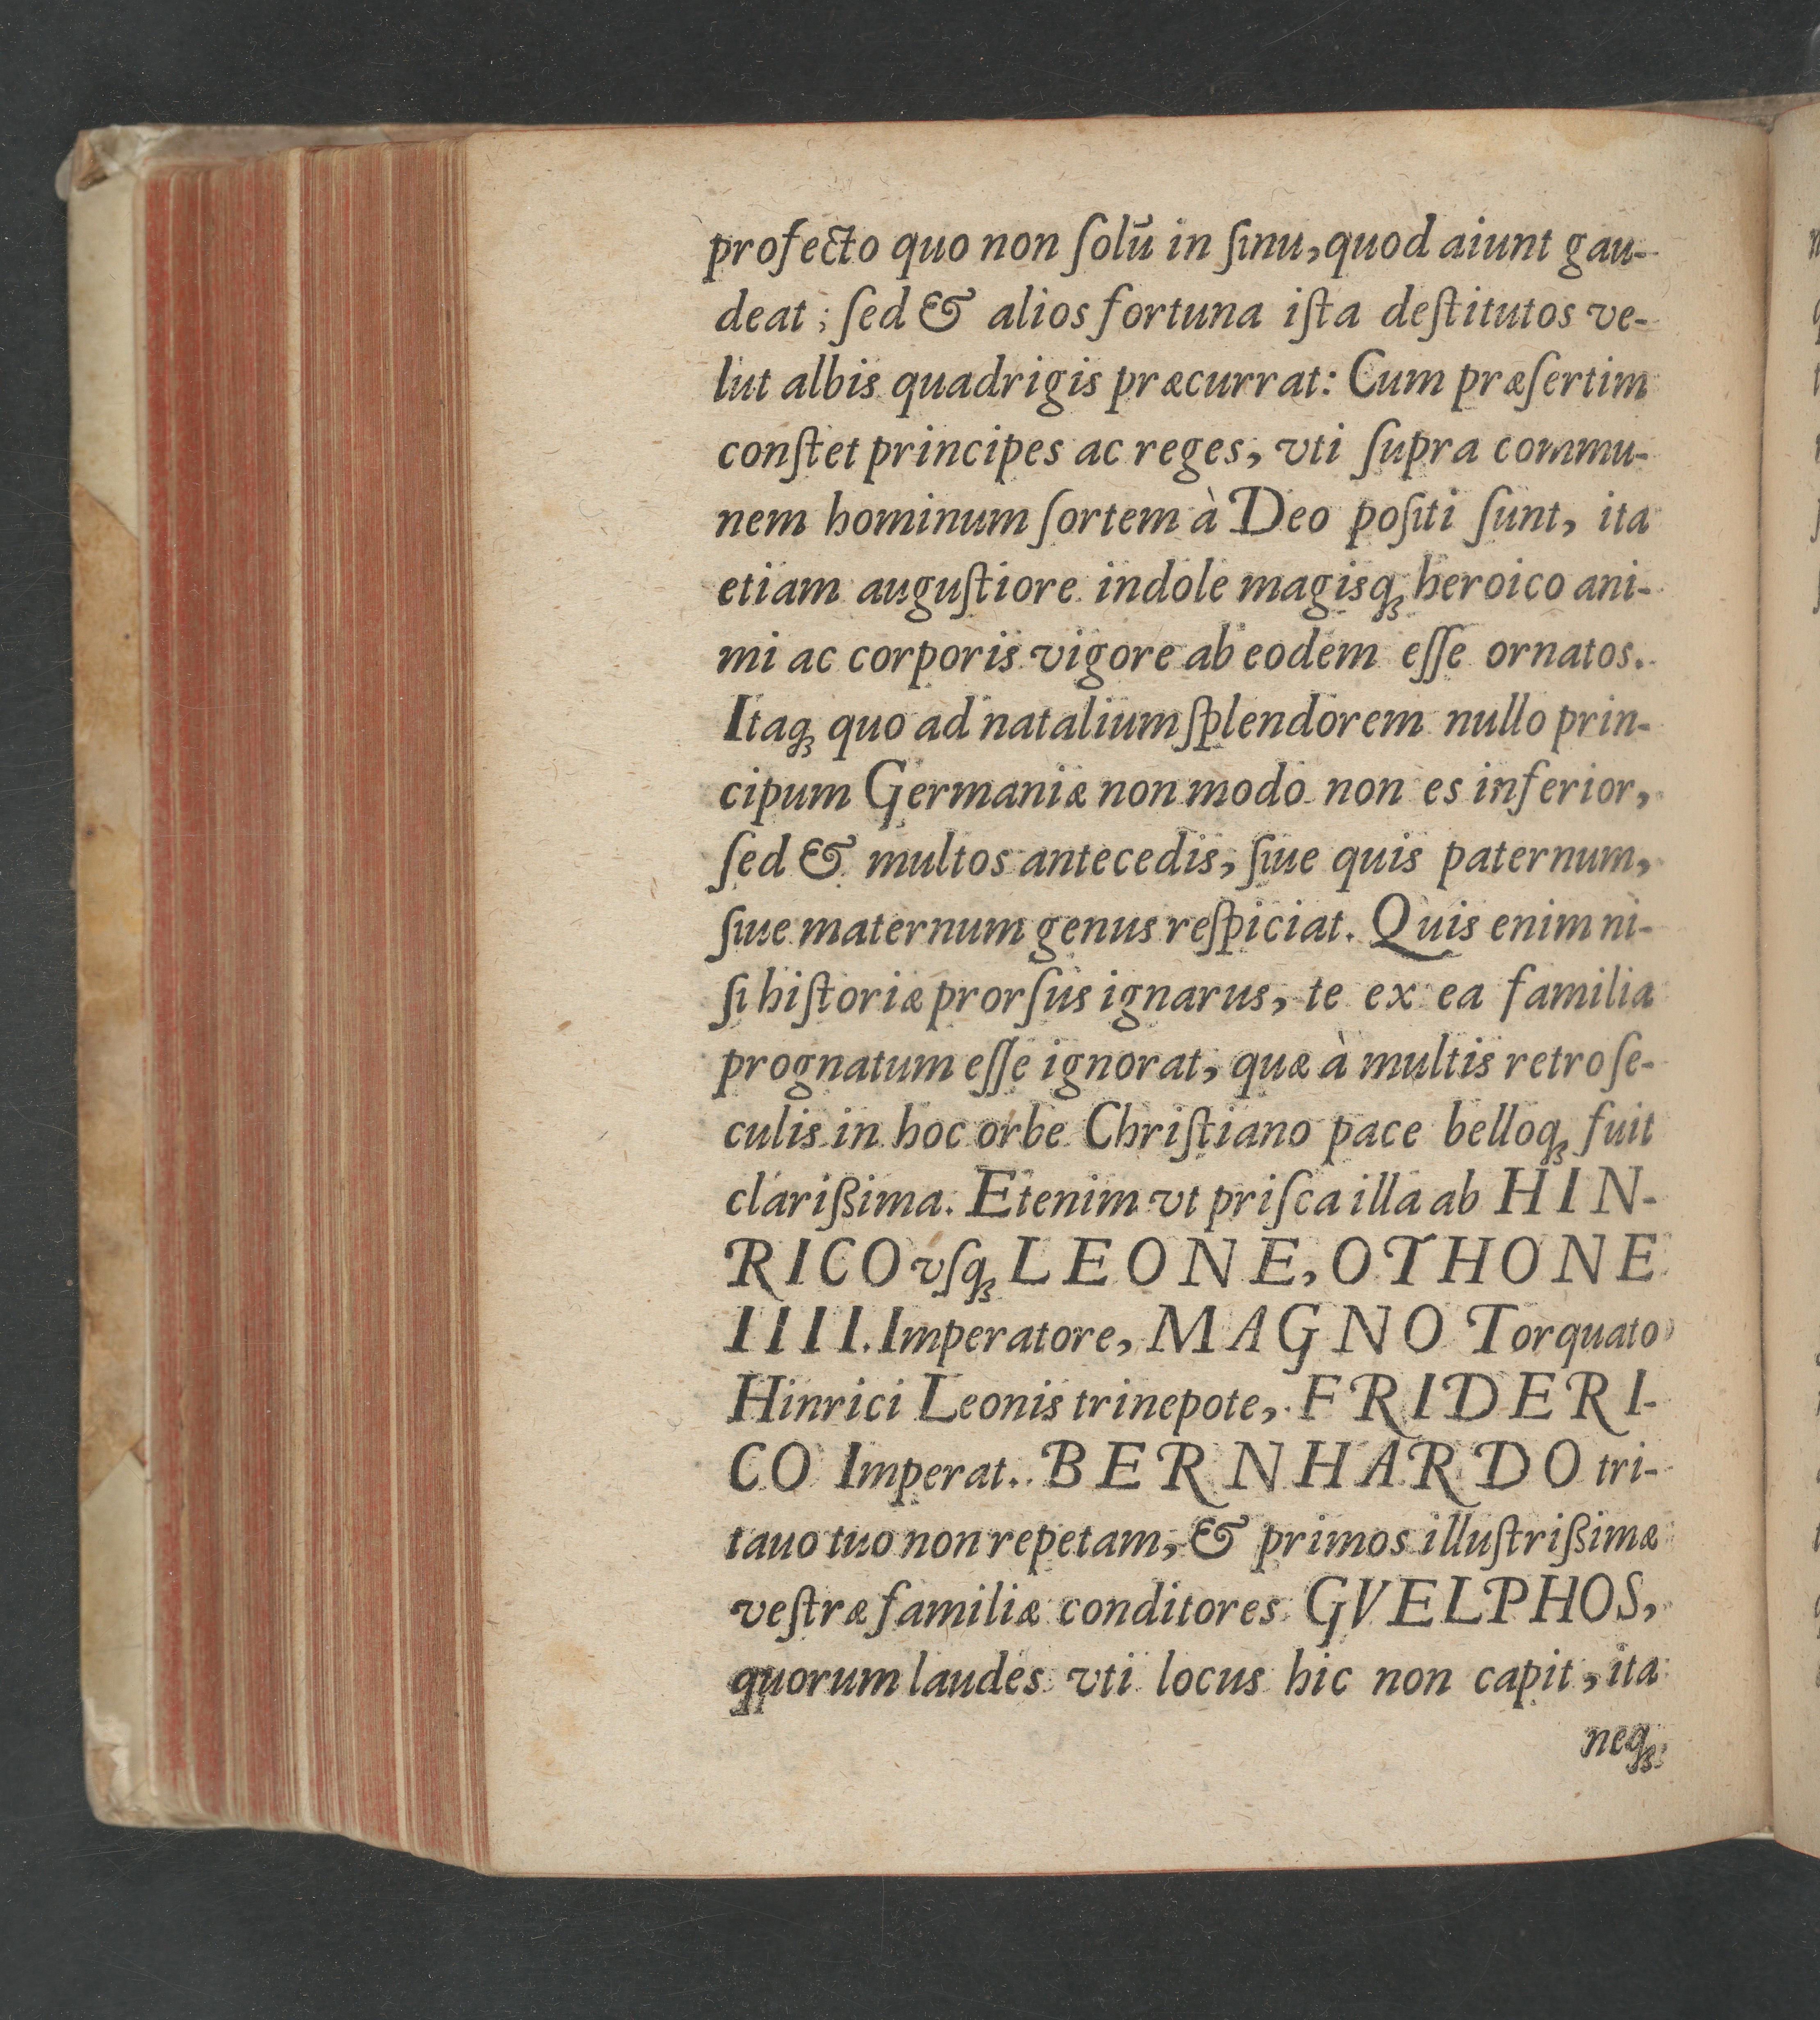 profecto quo non ſolū in ſinu, quod aiunt gau-
deat ; ſed & alios fortuna iſta deſtitutos ve-
lut albis quadrigis præcurrat: Cum præſertim
conſtet principes ac reges, vti ſupra commu-
nem hominum ſortem à Deo poſiti ſunt, ita
etiam auguſtiore indole magisq́ꝫ heroico ani-
mi ac corporis vigore ab eodem eſſe ornatos.
Itaqꝫ quo ad natalium ſplendorem nullo prin-
cipum Germaniæ non modo non es inferior,
ſed & multos antecedis, ſiue quis paternum,
ſiue maternum genus reſpiciat. Quis enim ni-
ſi hiſtoriæ prorſus ignarus, te ex ea familia
prognatum eſſe ignorat, quæ à multis retro ſe-
culis in hoc orbe Chriſtiano pace belloqꝫ fuit
clarißima. Etenim vt priſca illa ab HIN-
RICO vſqꝫ LEONE, OTHONE
IIII. Imperatore, MAGNO Torquato
Hinrici Leonis trinepote, FRIDERI-
CO Imperat. BERNHARDO tri-
tauo tuo non repetam, & primos illuſtrißimæ
veſtræ familiæ conditores GVELPHOS,
quorum laudes vti locus hic non capit, ita
neqꝫ